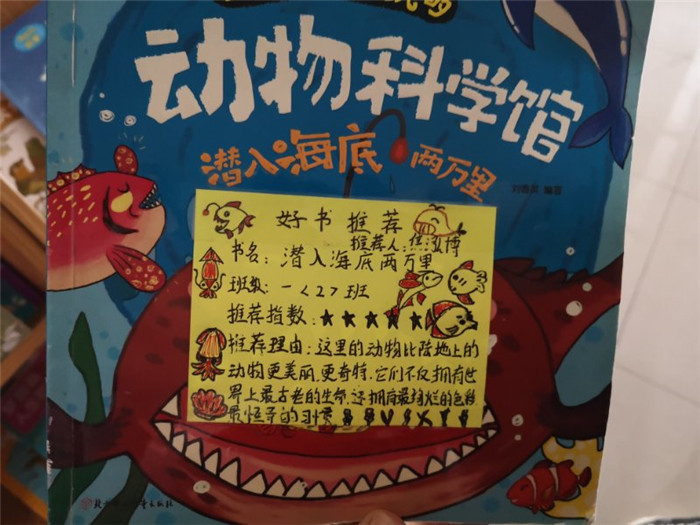 动物科学馆
潜入海底两万里
编著
好书推荐
推荐人:焦浚博
书名:潜入海底两万里
班级:一<2>班
推荐指数:★★★★★
推荐理由:这里的动物比陆地上的
动物更美丽.更奇特.它们不仅拥有世
界上最古老的生命.还拥有最绚烂的色彩
最怪异的习惯